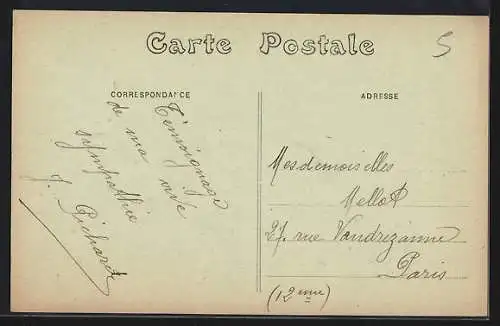 Carte Postale
5
CORRESPONDANCE
ADRESSE
Témoignage
de ma vive
sympathie
J. Richard
Mesdemoiselles
Mellot
27. rue Vandrezanne
Paris
(12eme)